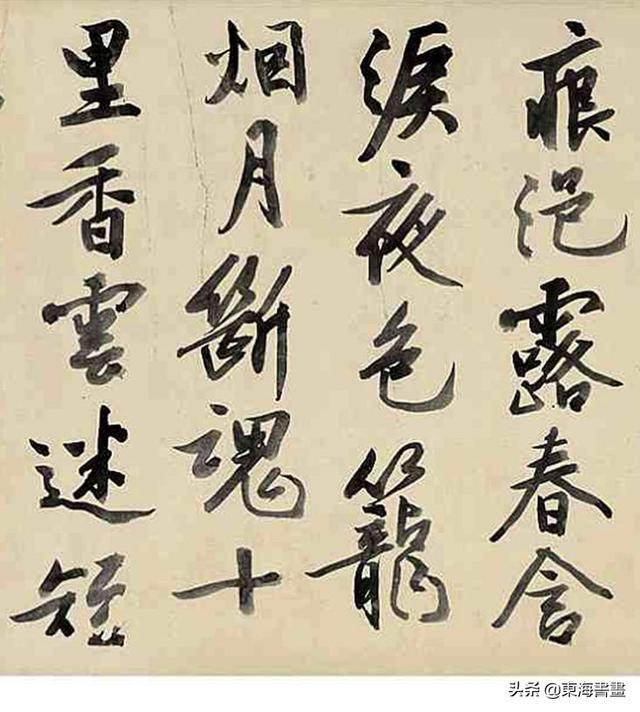 痕浥露春含
淚夜色籠
烟月斷魂十
里香雲迷短
头条 @東海書畫